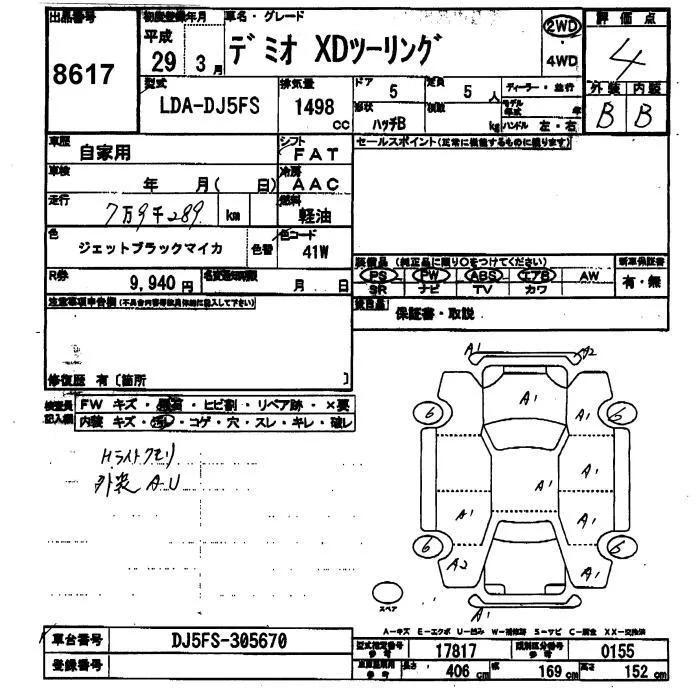 出品番号
8617
初度登録年月
平成
29 3月
車名・グレード
デミオ XDツーリング
2WD
4WD
評価点
4
外装 内装
B B
型式
LDA-DJ5FS
排気量
1498
cc
ドア
5
定員
5
人
形状
ハッチB
kg
ディーラー・並行
モデル
年式 年
ハンドル 左・右
車歴
自家用
シフト
FAT
車検
年 月( 日)
冷房
AAC
走行
7万9千289 km
燃料
軽油
色
ジェットブラックマイカ
色替
色コード
41W
R券
9,940円
月 日
セールスポイント(正常に機能するものに限ります)
装備品 (純正品に限り○をつけてください)
PS PW ABS エアB AW
SR ナビ TV カワ
新車保証書
有・無
後日品
保証書・取説
注意事項申告欄
修復歴 有 〔箇所 〕
検査員
記入欄
FW キズ・ ・ヒビ割・リペア跡・×要
内装 キズ・ ・コゲ・穴・スレ・キレ・破レ
Hライトクモリ
外装 A.U
A1
A1
6
6
A1
A1
A1
A1
A1
6
6
A2
A1
A1
スペア
A−キズ E−エクボ U−凹み W−補修跡 S−サビ C−腐食 XX−交換済
車台番号
DJ5FS-305670
登録番号
型式指定番号
参考
17817
類別区分番号
参考
0155
参考
長さ
406 cm
幅
169 cm
高さ
152 cm